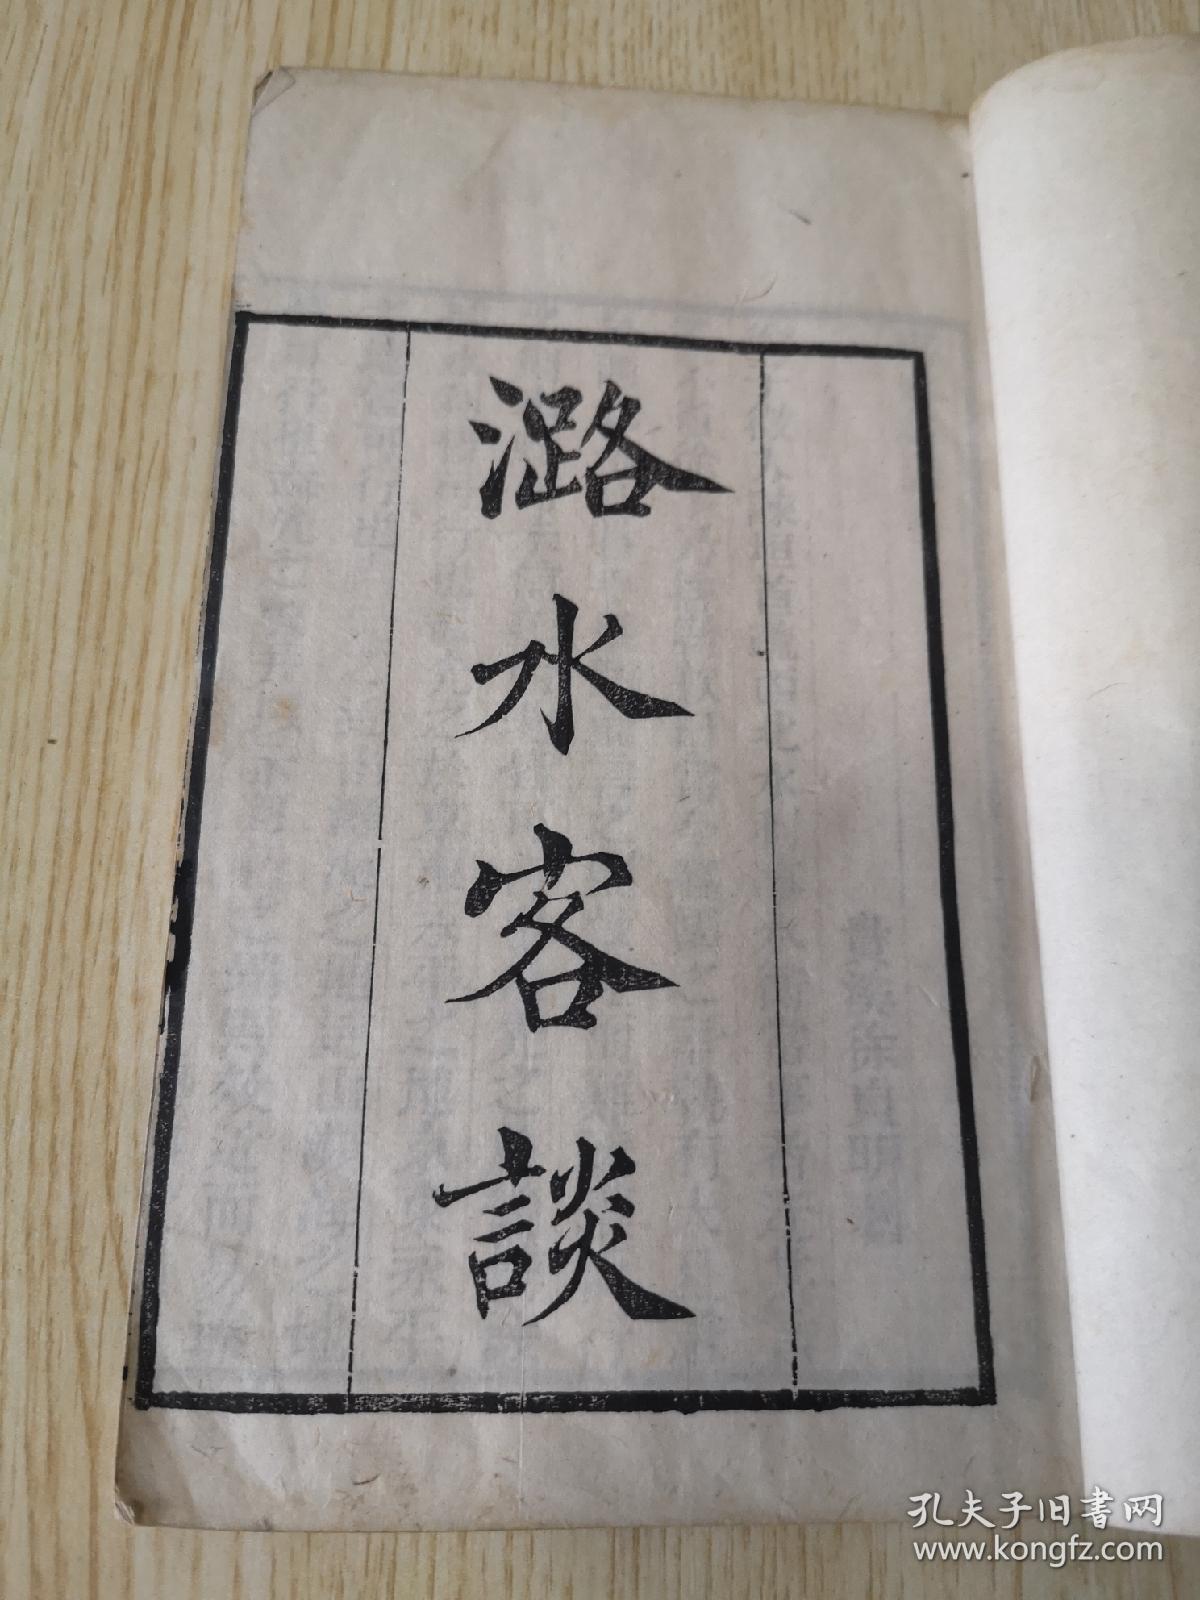 潞水客談
孔夫子旧書网
www.kongfz.com